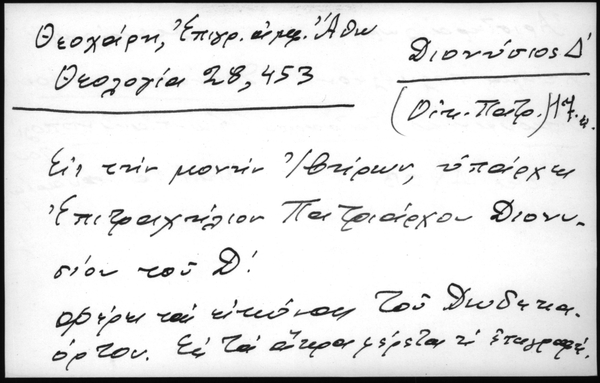 Θεοχάρη, Ἐπιγρ. ἀμφ. Ἄθω
Θεολογία 28, 453
Διονύσιος Δ΄
(Οἰκ. Πατρ.) 17 αι.
Εἰς τὴν μονὴν Ἰβήρων, ὑπάρχει
Ἐπιτραχήλιον Πατριάρχου Διονυ-
σίου τοῦ Δ΄.
φέρει τὰς εἰκόνας τοῦ Δωδεκα-
όρτου. Εἰς τὰ ἄκρα φέρεται ἡ ἐπιγραφή.